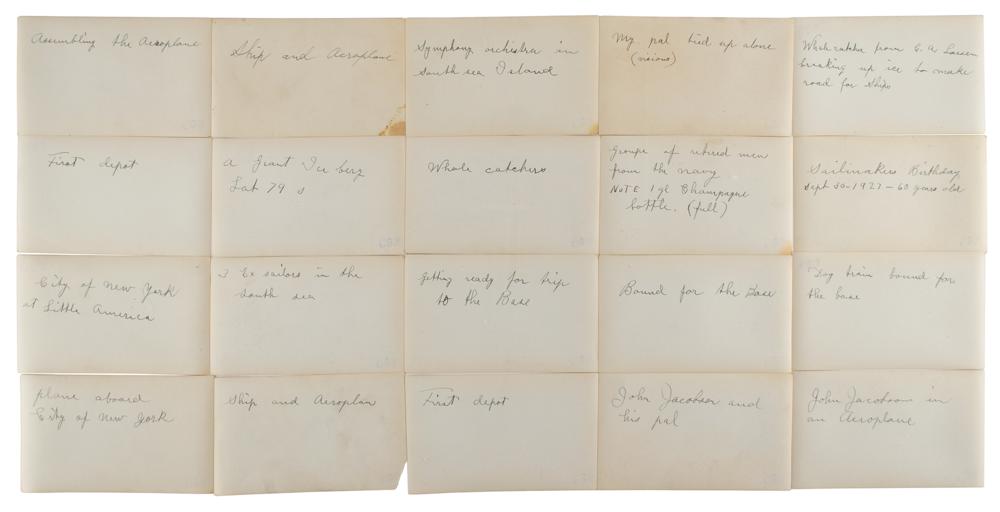 Assembling the Aeroplane
Ship and Aeroplane
Symphony orchestra in
south sea Island
My pal tied up alone
(vicious)
from C. A. Larsen
breaking up ice to make
road for ships
First depot
a giant Ice berg
Lat 79 s
Whale catchers
Groupe of retired men
from the navy
NOTE 1 gl Champagne
bottle. (full)
Sailmakers Birthday
Sept 30-1927 - 60 years old
City of New York
at Little America
3 Ex sailors in the
South sea
Getting ready for trip
to the Base
Bound for the Base
Dog train bound for
the base
plane aboard
City of New York
Ship and Aeroplan
First depot
John Jacobson and
his pal
John Jacobson in
an Aeroplane